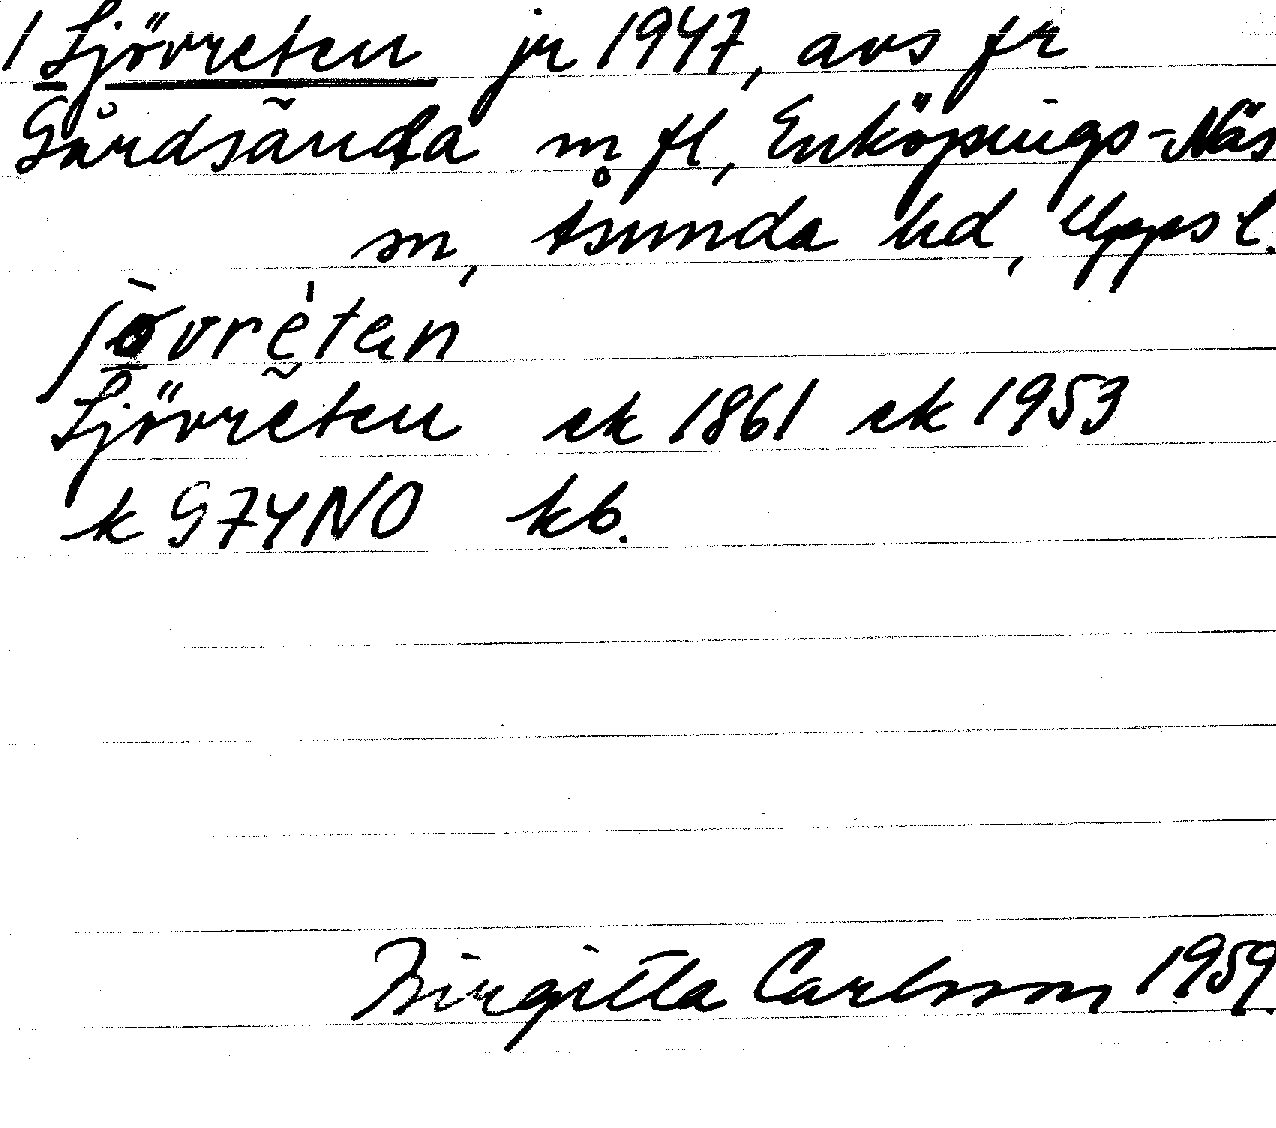 1 Sjövreten jr 1947, avs fr
Gårdsända m fl, Enköpings-Näs
sn, Åsunda hd, Uppsl.
Sjövreten ek 1861 ek 1953
k G74NO kb.
Birgitta Carlsson 1959